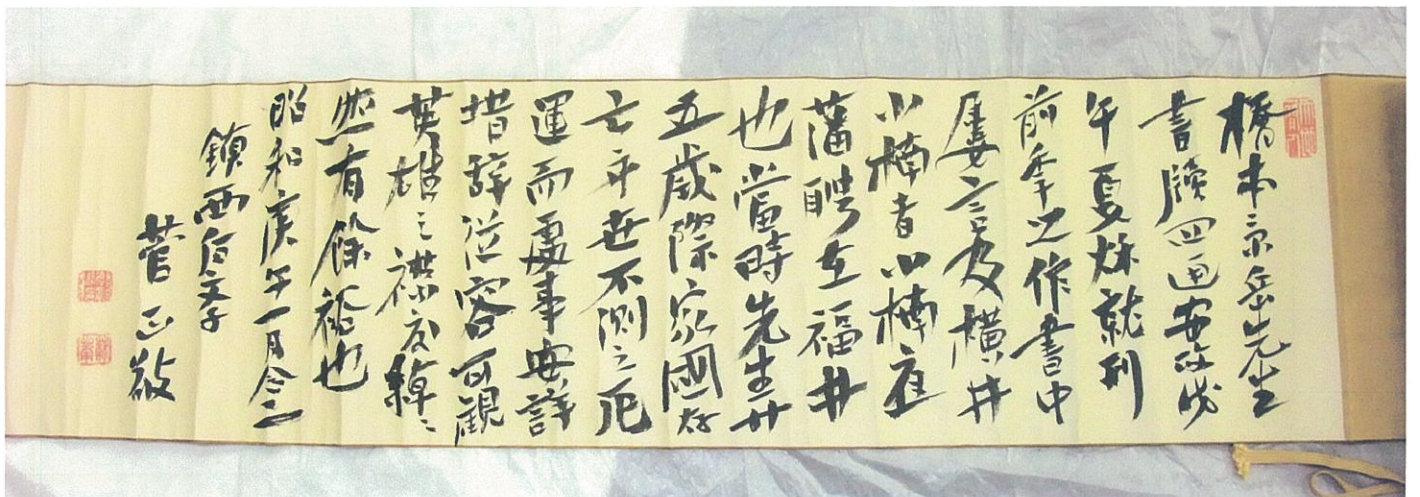 橋本景岳先生
書牘四通安政戊
午夏秋就刑
前季之作書中
屡言及横井
小楠者小楠應
藩聘在福井
也當時先生廿
五歳際家國存
亡弁世不測之厄
運而處事安詳
措辞従容可観
英雄之襟度綽〻
然有餘裕也
昭和庚午一月念二
鎮西後文子
菅正敬